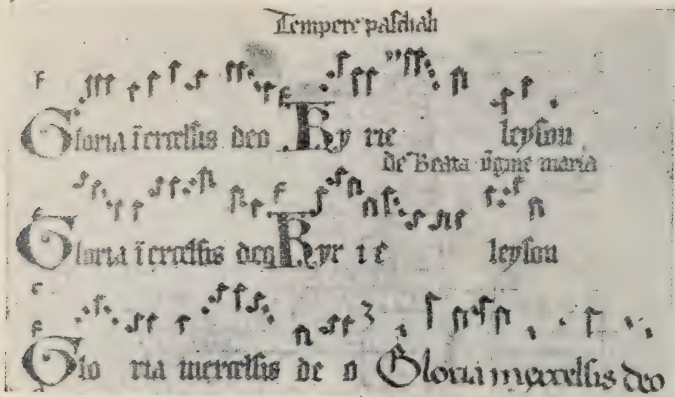 Tempore paschali
Gloria ī excelsis deo Ky rie leyson
de Beata v̄gine maria
Gloria ī excelsis deo Kyr i e leyson
Glo ria in excelsis de o Gloria in excelsis deo